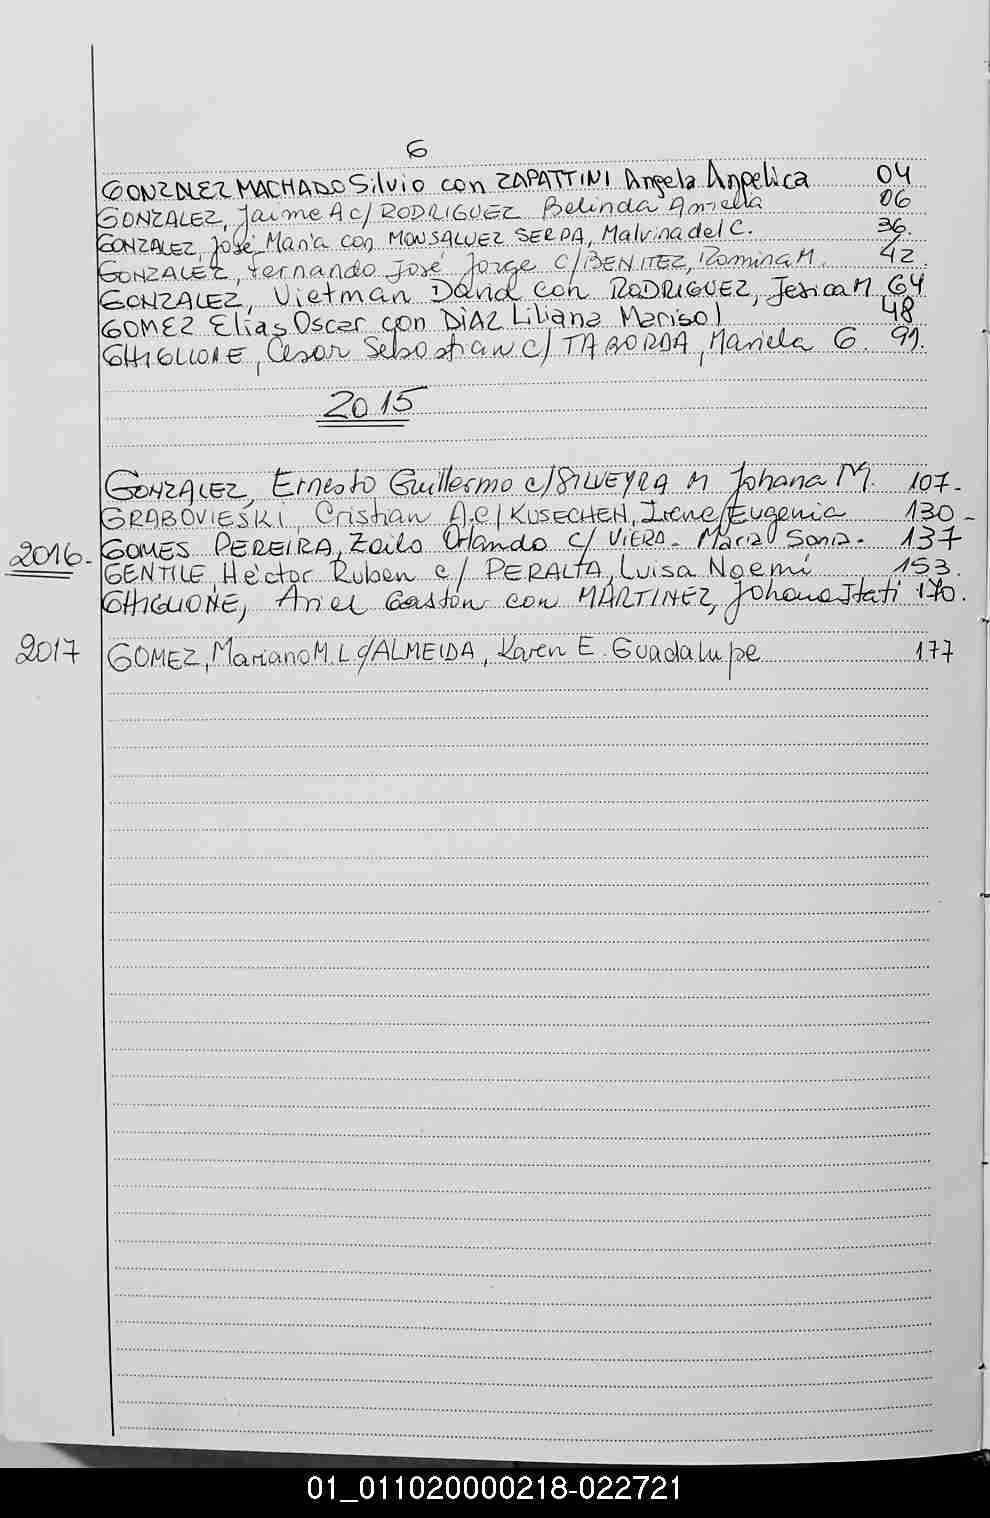 G
GONZALEZ MACHADO Silvio con ZAPATTINI Angela Angelica 04
GONZALEZ, Jaime A c/ RODRIGUEZ Belinda 06
GONZALEZ, José Maria con MONSALVEZ SERPA, Malvina del C. 36.
GONZALEZ, Fernando José Jorge C/ BENITEZ, Romina M. 42.
GONZALEZ, Vietman David con RODRIGUEZ, Jesica M 64
GOMEZ Elias Oscar con DIAZ Liliana Marisol 48
GHIGLIONE, Cesar Sebastian c/ TABORDA, Mariela G. 91.
2015
GONZALEZ, Ernesto Guillermo c/ SILVEYRA M Johana M. 107-
GRABOVIESKI, Cristian A. c/ KUSECHEN, Irene Eugenia 130-
2016. GOMES PEREIRA, Zoilo Orlando c/ VIERA- Maria Sonia. 137
GENTILE, Héctor Ruben c/ PERALTA, Luisa Noemí 153.
GHIGLIONE, Ariel Gaston con MARTINEZ, Johana Itati 170.
2017 GOMEZ, Mariano M. L c/ ALMEIDA, Karen E. Guadalupe 177
01_011020000218-022721